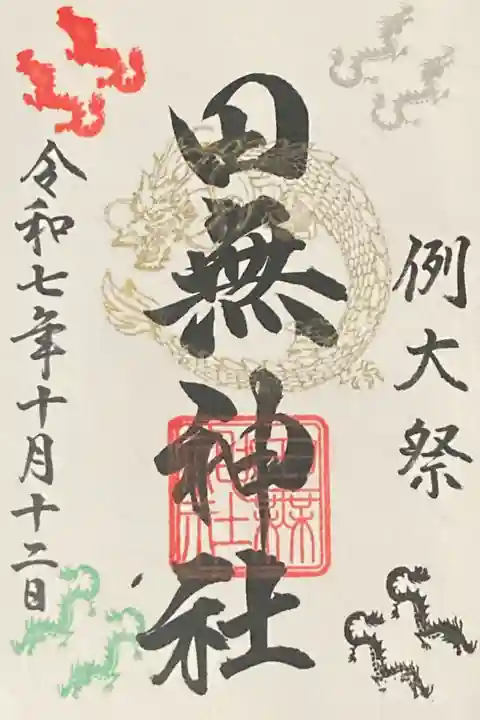 例大祭
田無神社
令和七年十月十二日